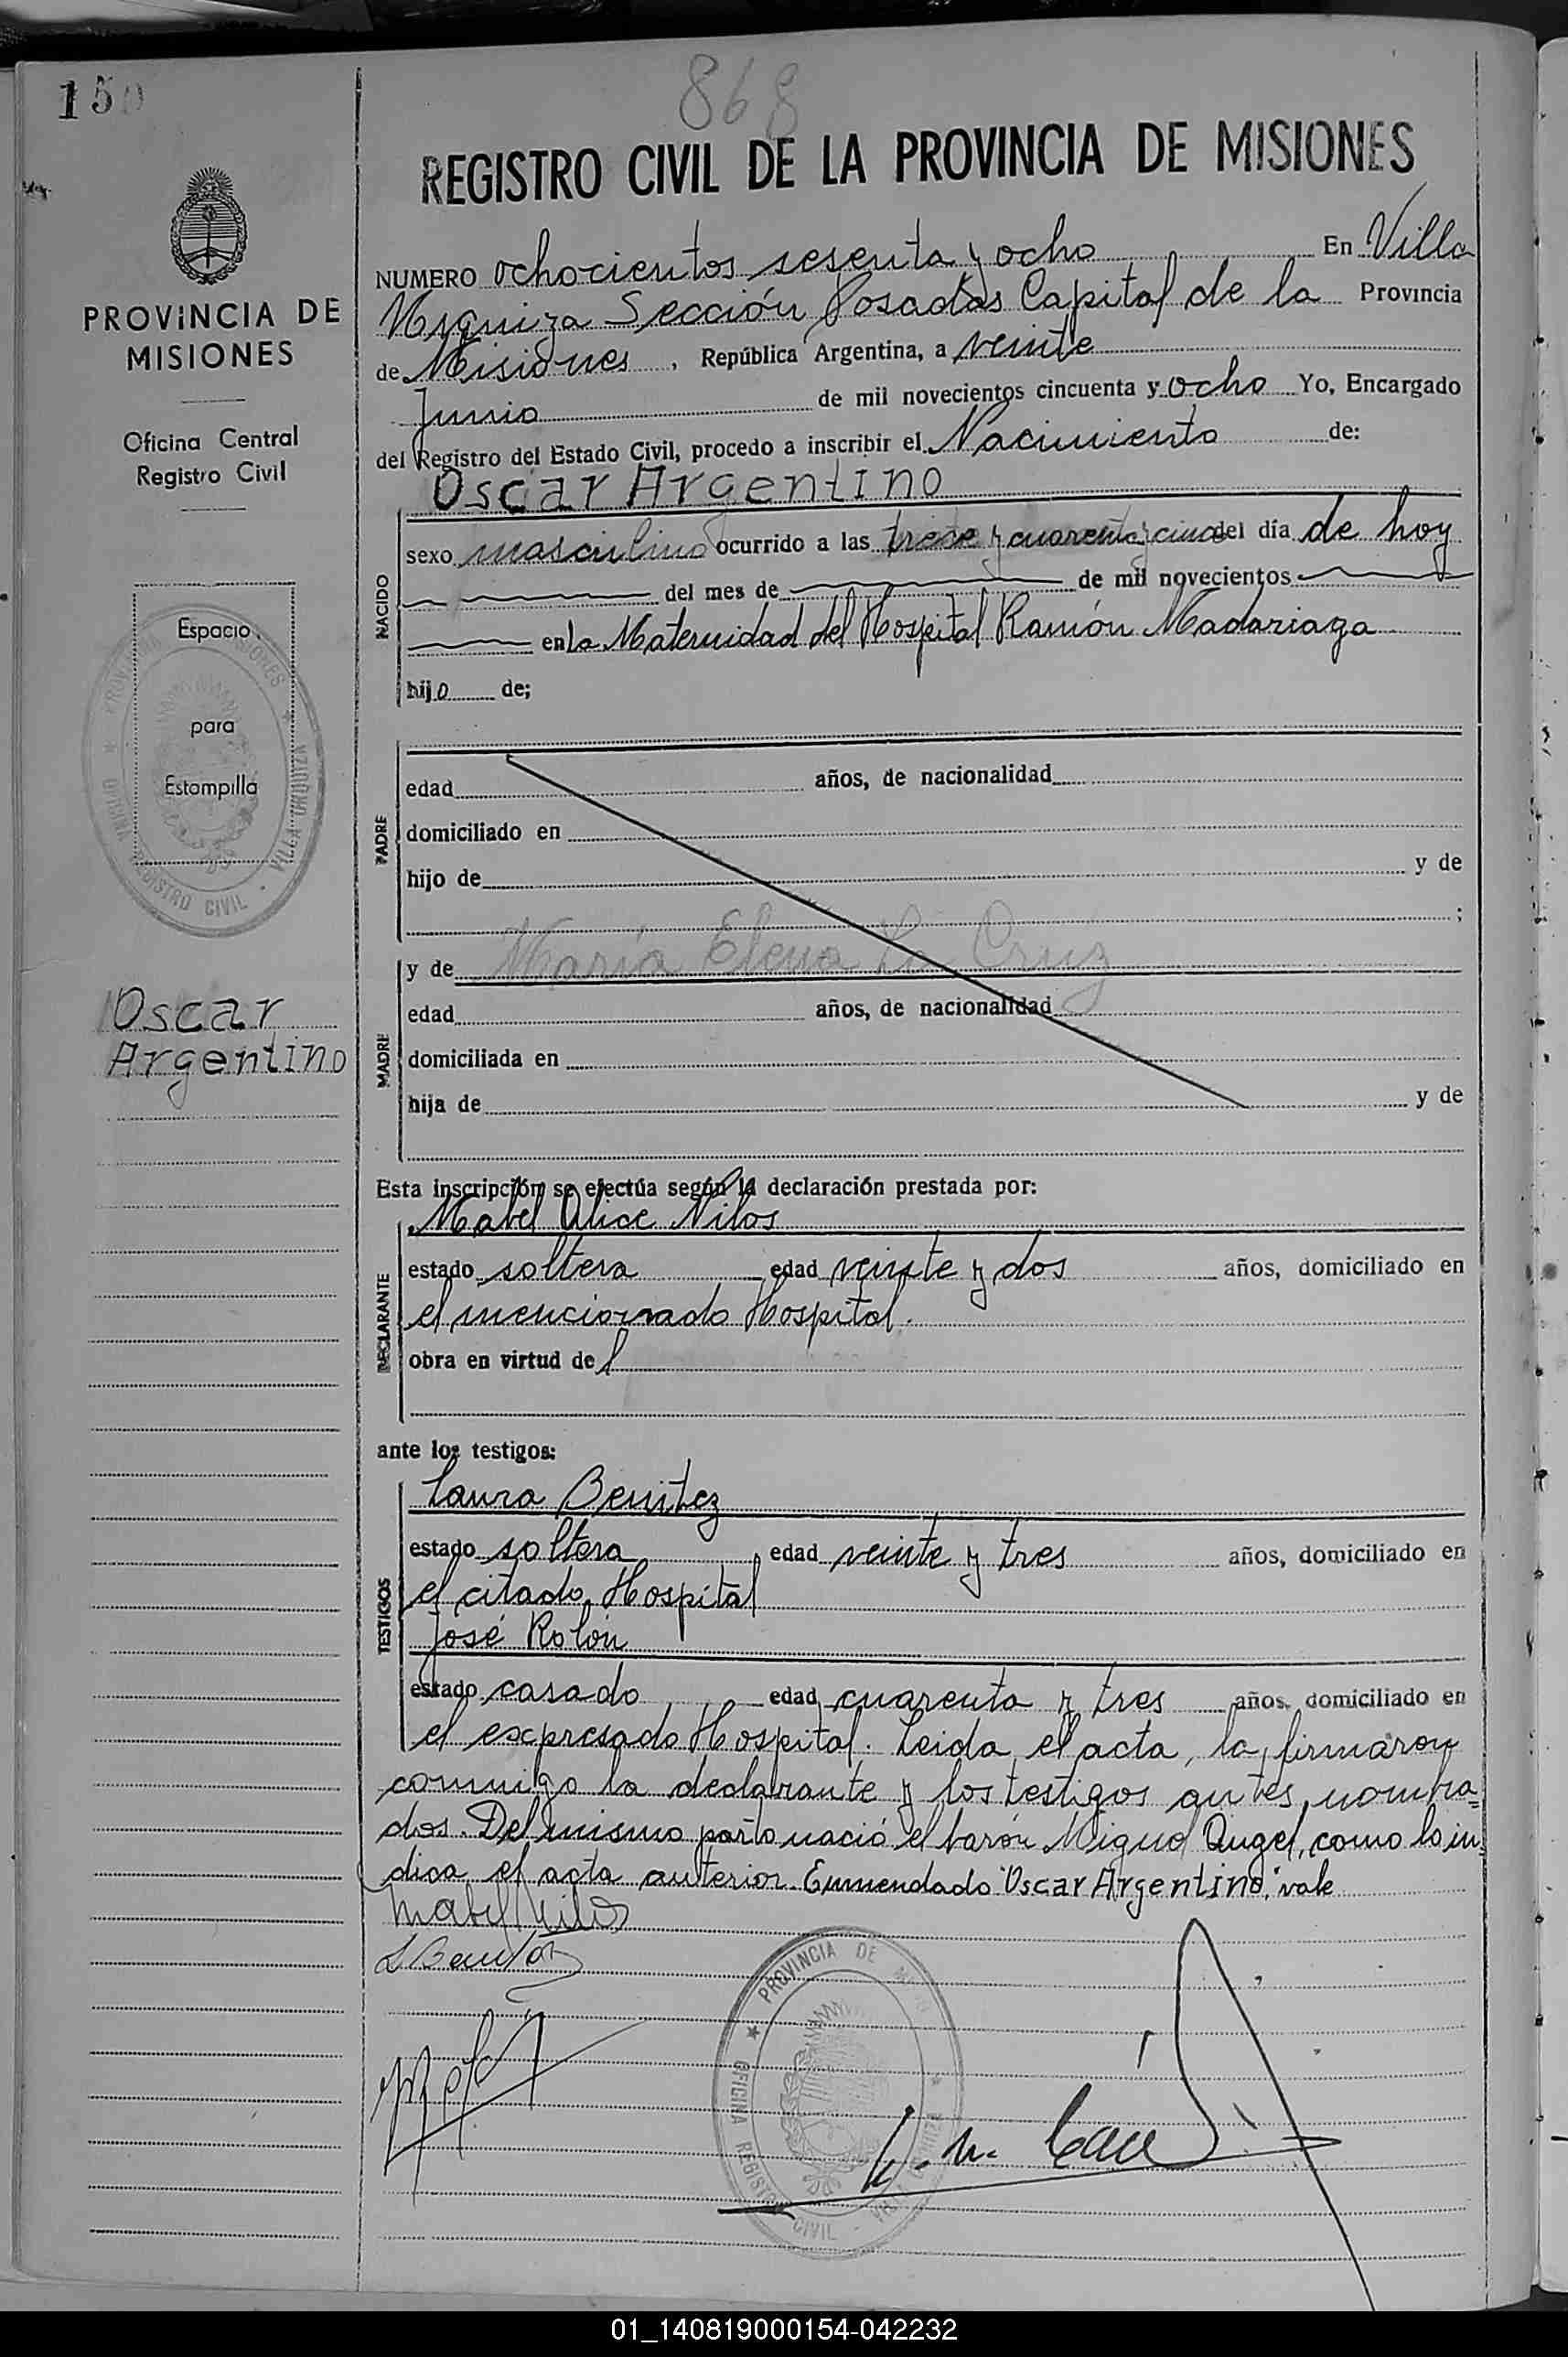 150
868
REGISTRO CIVIL DE LA PROVINCIA DE MISIONES
PROVINCIA DE
MISIONES
Oficina Central
Registro Civil
Espacio
para
Estampilla
Oscar
Argentino
NUMERO ochocientos sesenta y ocho En Villa
Urquiza Sección Posadas Capital de la Provincia
de Misiones, República Argentina, a veinte
Junio de mil novecientos cincuenta y ocho Yo, Encargado
del Registro del Estado Civil, procedo a inscribir el Nacimiento de:
Oscar Argentino
NACIDO
sexo masculino ocurrido a las trece y cuarenta y cinco del día de hoy
del mes de de mil novecientos
en la Maternidad del Hospital Ramón Madariaga
hijo de;
PADRE
edad años, de nacionalidad
domiciliado en
hijo de y de
;
MADRE
y de María Elena Cruz
edad años, de nacionalidad
domiciliada en
hija de y de
Esta inscripción se efectúa según la declaración prestada por:
DECLARANTE
Mabel Alice Nilos
estado soltera edad veinte y dos años, domiciliado en
el mencionado Hospital.
obra en virtud de
ante los testigos:
TESTIGOS
Laura Benitez
estado soltera edad veinte y tres años, domiciliado en
el citado Hospital
José Rolón
estado casado edad cuarenta y tres años, domiciliado en
el expresado Hospital. Leida el acta, la firmaron
conmigo la declarante y los testigos antes nombra=
dos. Del mismo parto nació el barón Miguel Angel, como lo in=
dica el acta anterior. Enmendado "Oscar Argentino," vale
PROVINCIA DE MISIONES
OFICINA REGISTRO CIVIL - VILLA URQUIZA
01_140819000154-042232